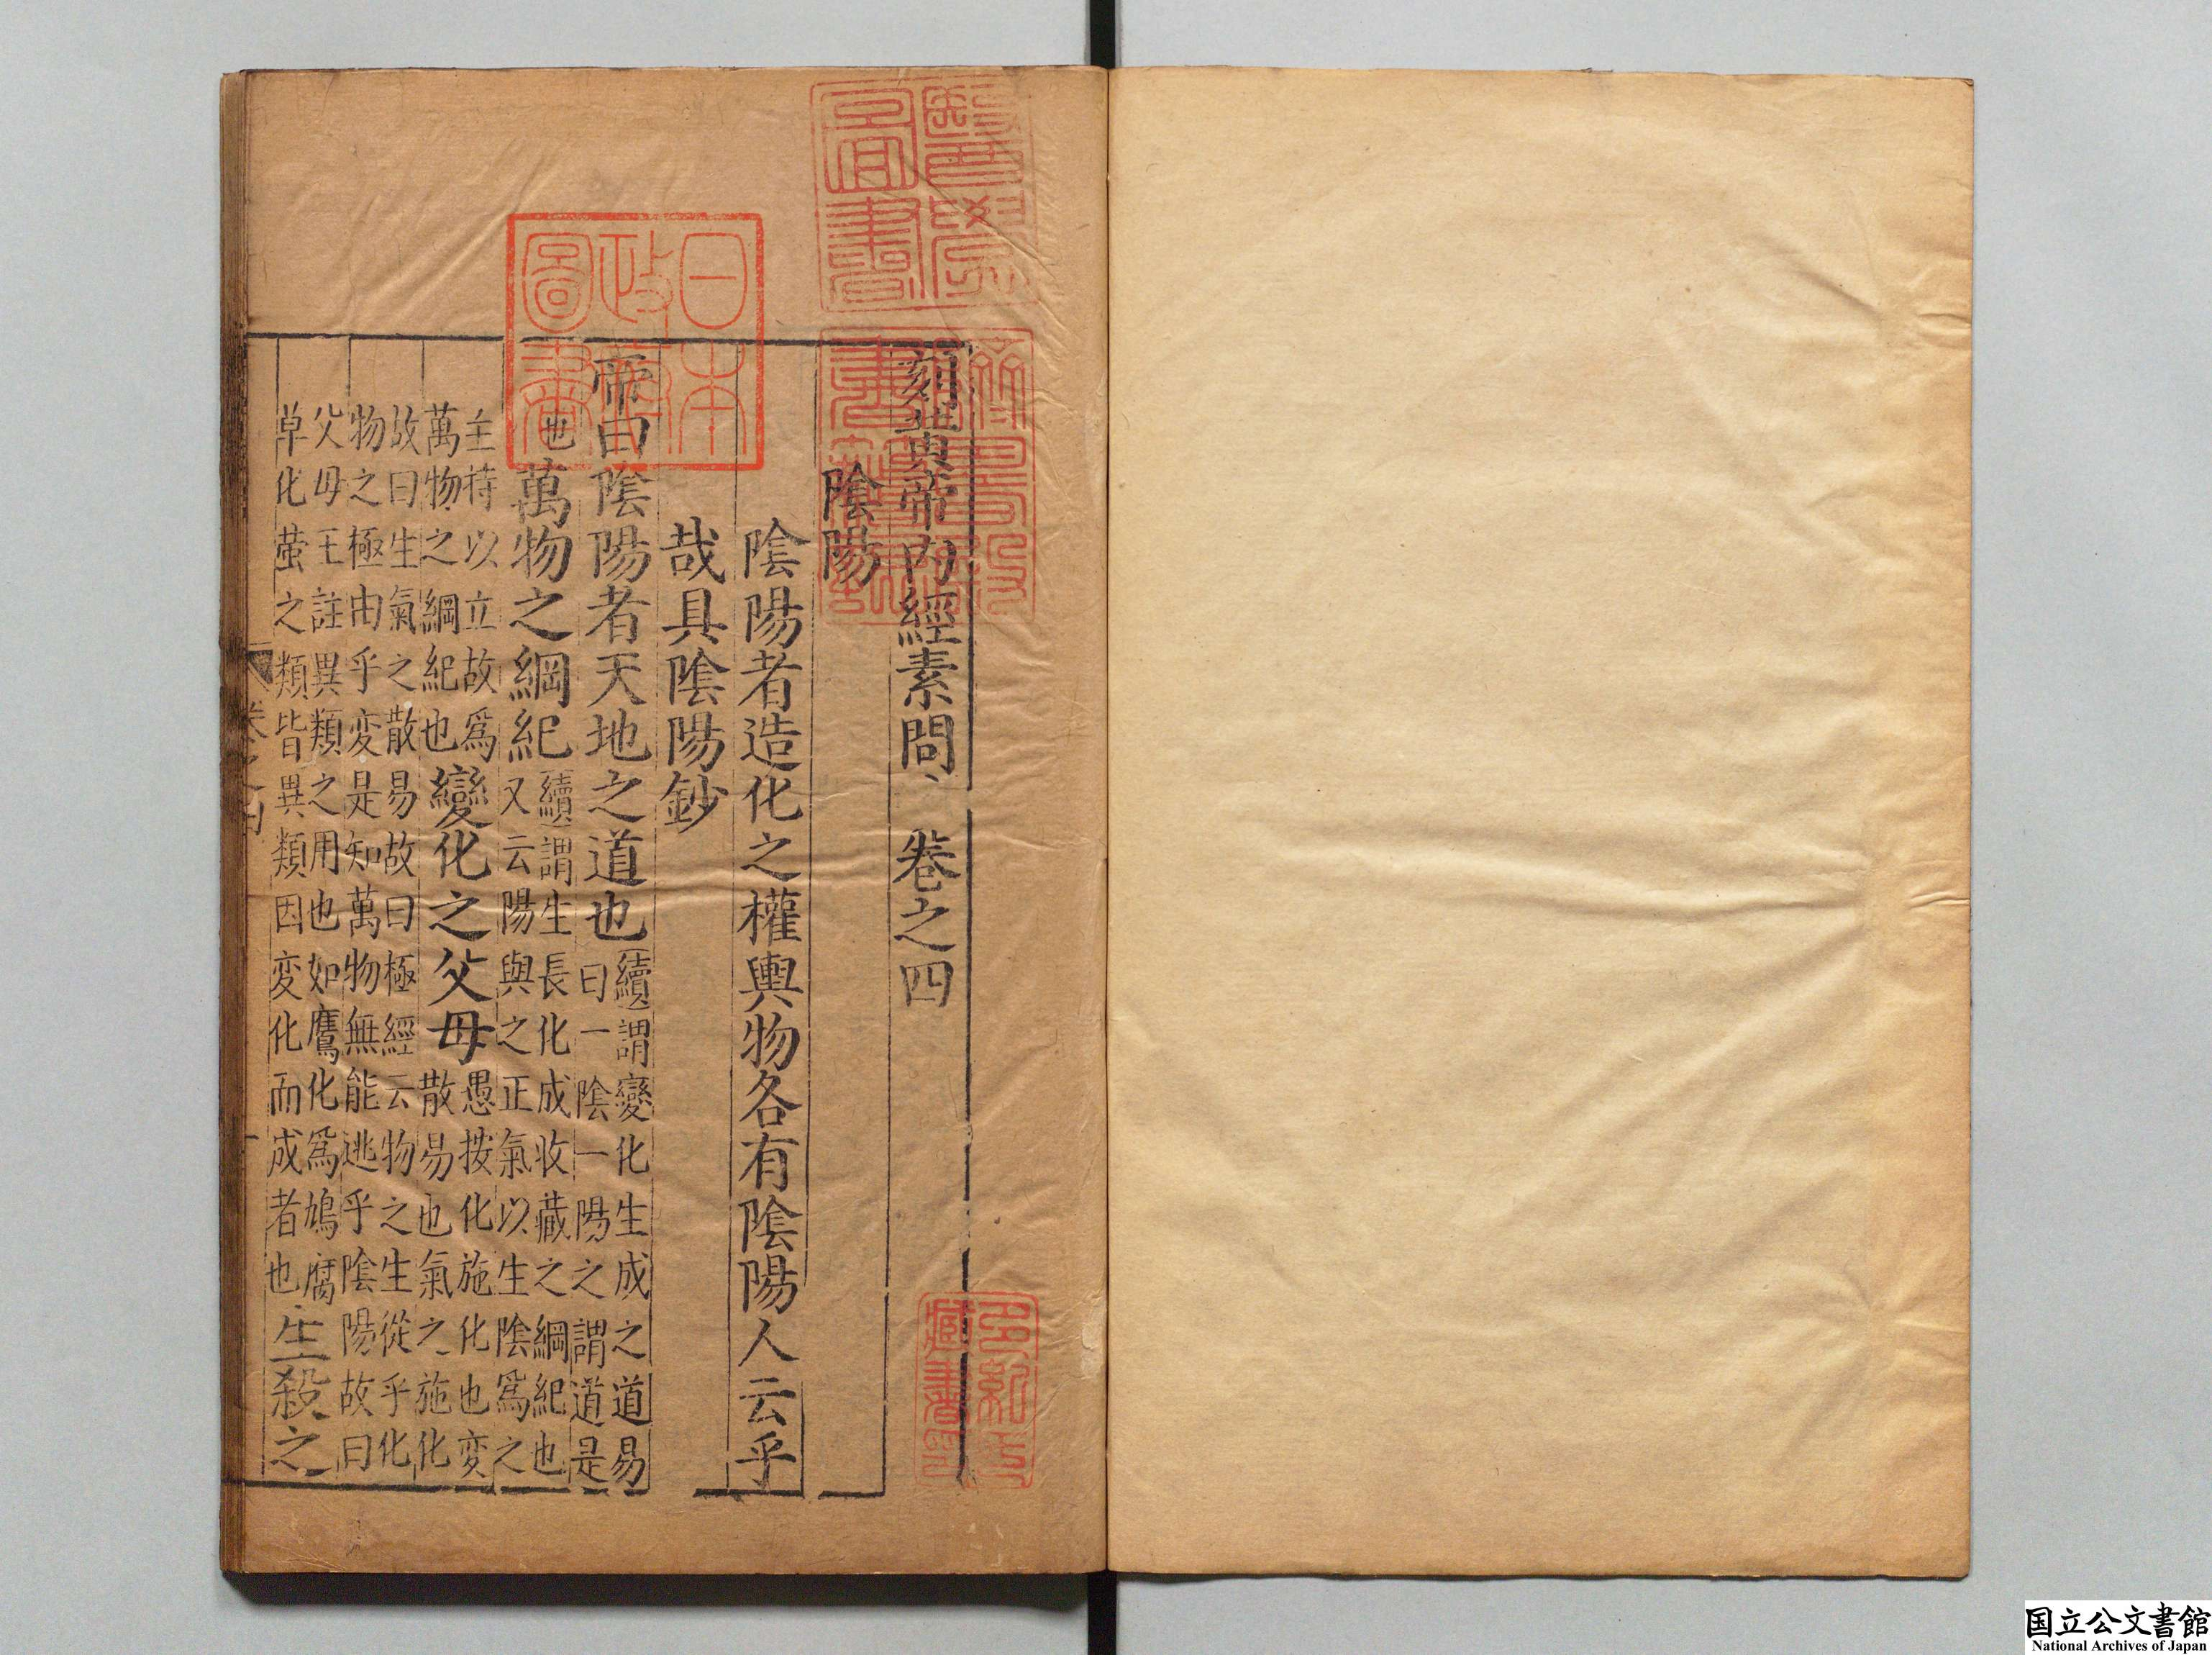 刻黃帝內經素問、卷之四
陰陽
陰陽者造化之權輿物各有陰陽人云乎
哉具陰陽鈔
帝曰陰陽者天地之道也續謂變化生成之道易
曰一陰一陽之謂道是
也萬物之綱紀續謂生長化成收藏之綱紀也
又云陽與之正氣以生陰爲之
主持以立故爲
萬物之綱紀也變化之父母愚按化施化也変
散易也氣之施化
故曰生氣之散易故曰極經云物之生從乎化
物之極由乎変是知萬物無能逃乎陰陽故曰
父母王註異類之用也如鷹化爲鳩腐
草化蛍之類皆異類因変化而成者也生殺之
日本政府圖書
多紀氏藏書印
国立公文書館
National Archives of Japan